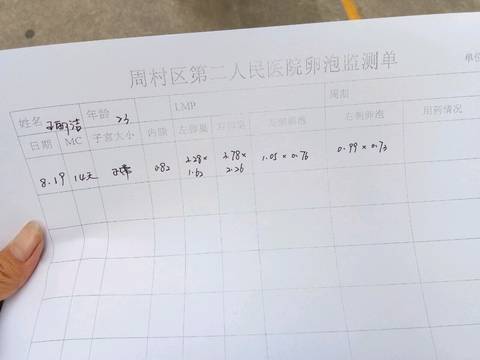 周村区第二人民医院卵泡监测单
单位
姓名 年龄 23 LMP 周期
日期 MC 子宫大小 内膜 左卵巢 右卵巢 左侧卵泡 右侧卵泡 用药情况
8.19 14天 正常 0.82 2.28× 2.78× 1.05×0.76 0.99×0.73
1.62 2.26